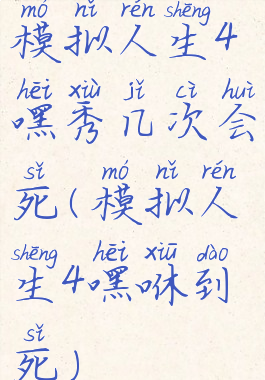 mó nǐ rén shēng
模拟人生4
hēi xiù jǐ cì huì
嘿秀几次会
sǐ mó nǐ rén
死(模拟人
shēng hēi xiū dào
生4嘿咻到
sǐ
死)